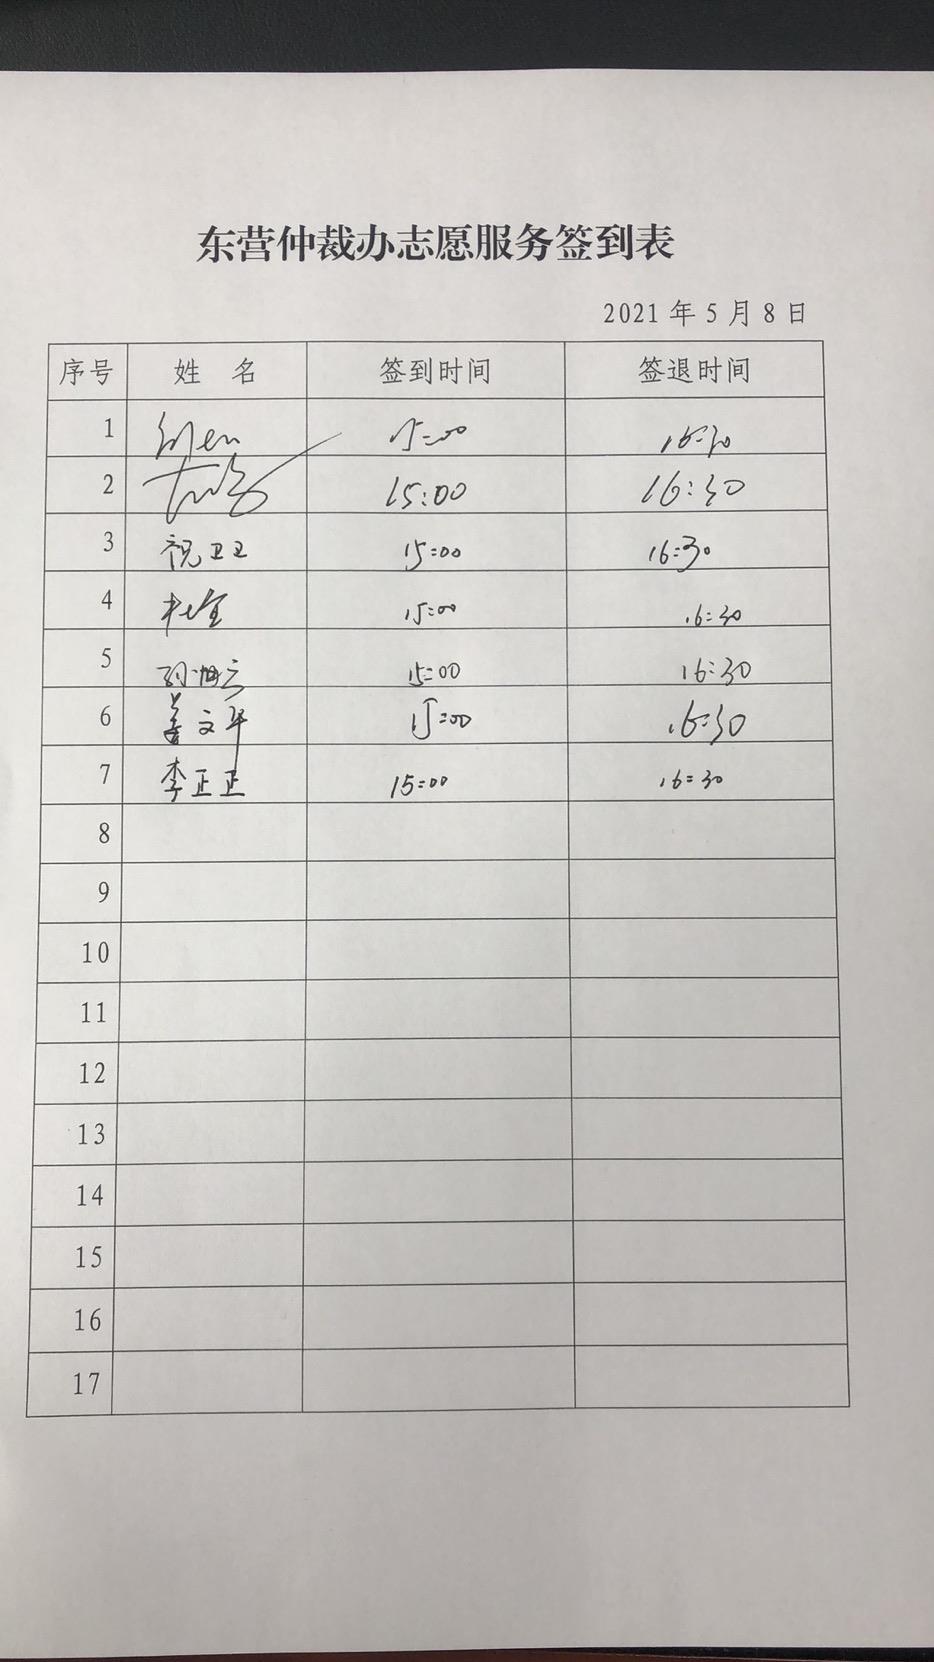 东营仲裁办志愿服务签到表
2021年5月8日
序号 姓 名 签到时间 签退时间
1 15:00 16:30
2 15:00 16:30
3 祝卫卫 15:00 16:30
4 15:00 16:30
5 15:00 16:30
6 姜文华 15:00 16:30
7 李正正 15:00 16:30
8
9
10
11
12
13
14
15
16
17